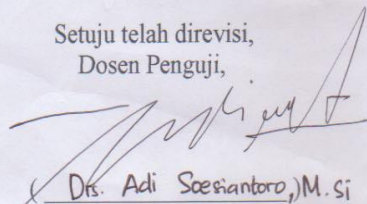 Setuju telah direvisi,
Dosen Penguji,
( Drs. Adi Soesiantoro,)M.Si